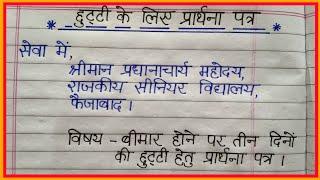 * छुट्टी के लिए प्रार्थना पत्र *
सेवा में,
श्रीमान प्रधानाचार्य महोदय,
राजकीय सीनियर विद्यालय,
फैजाबाद।
विषय - बीमार होने पर तीन दिनों
की छुट्टी हेतु प्रार्थना पत्र।